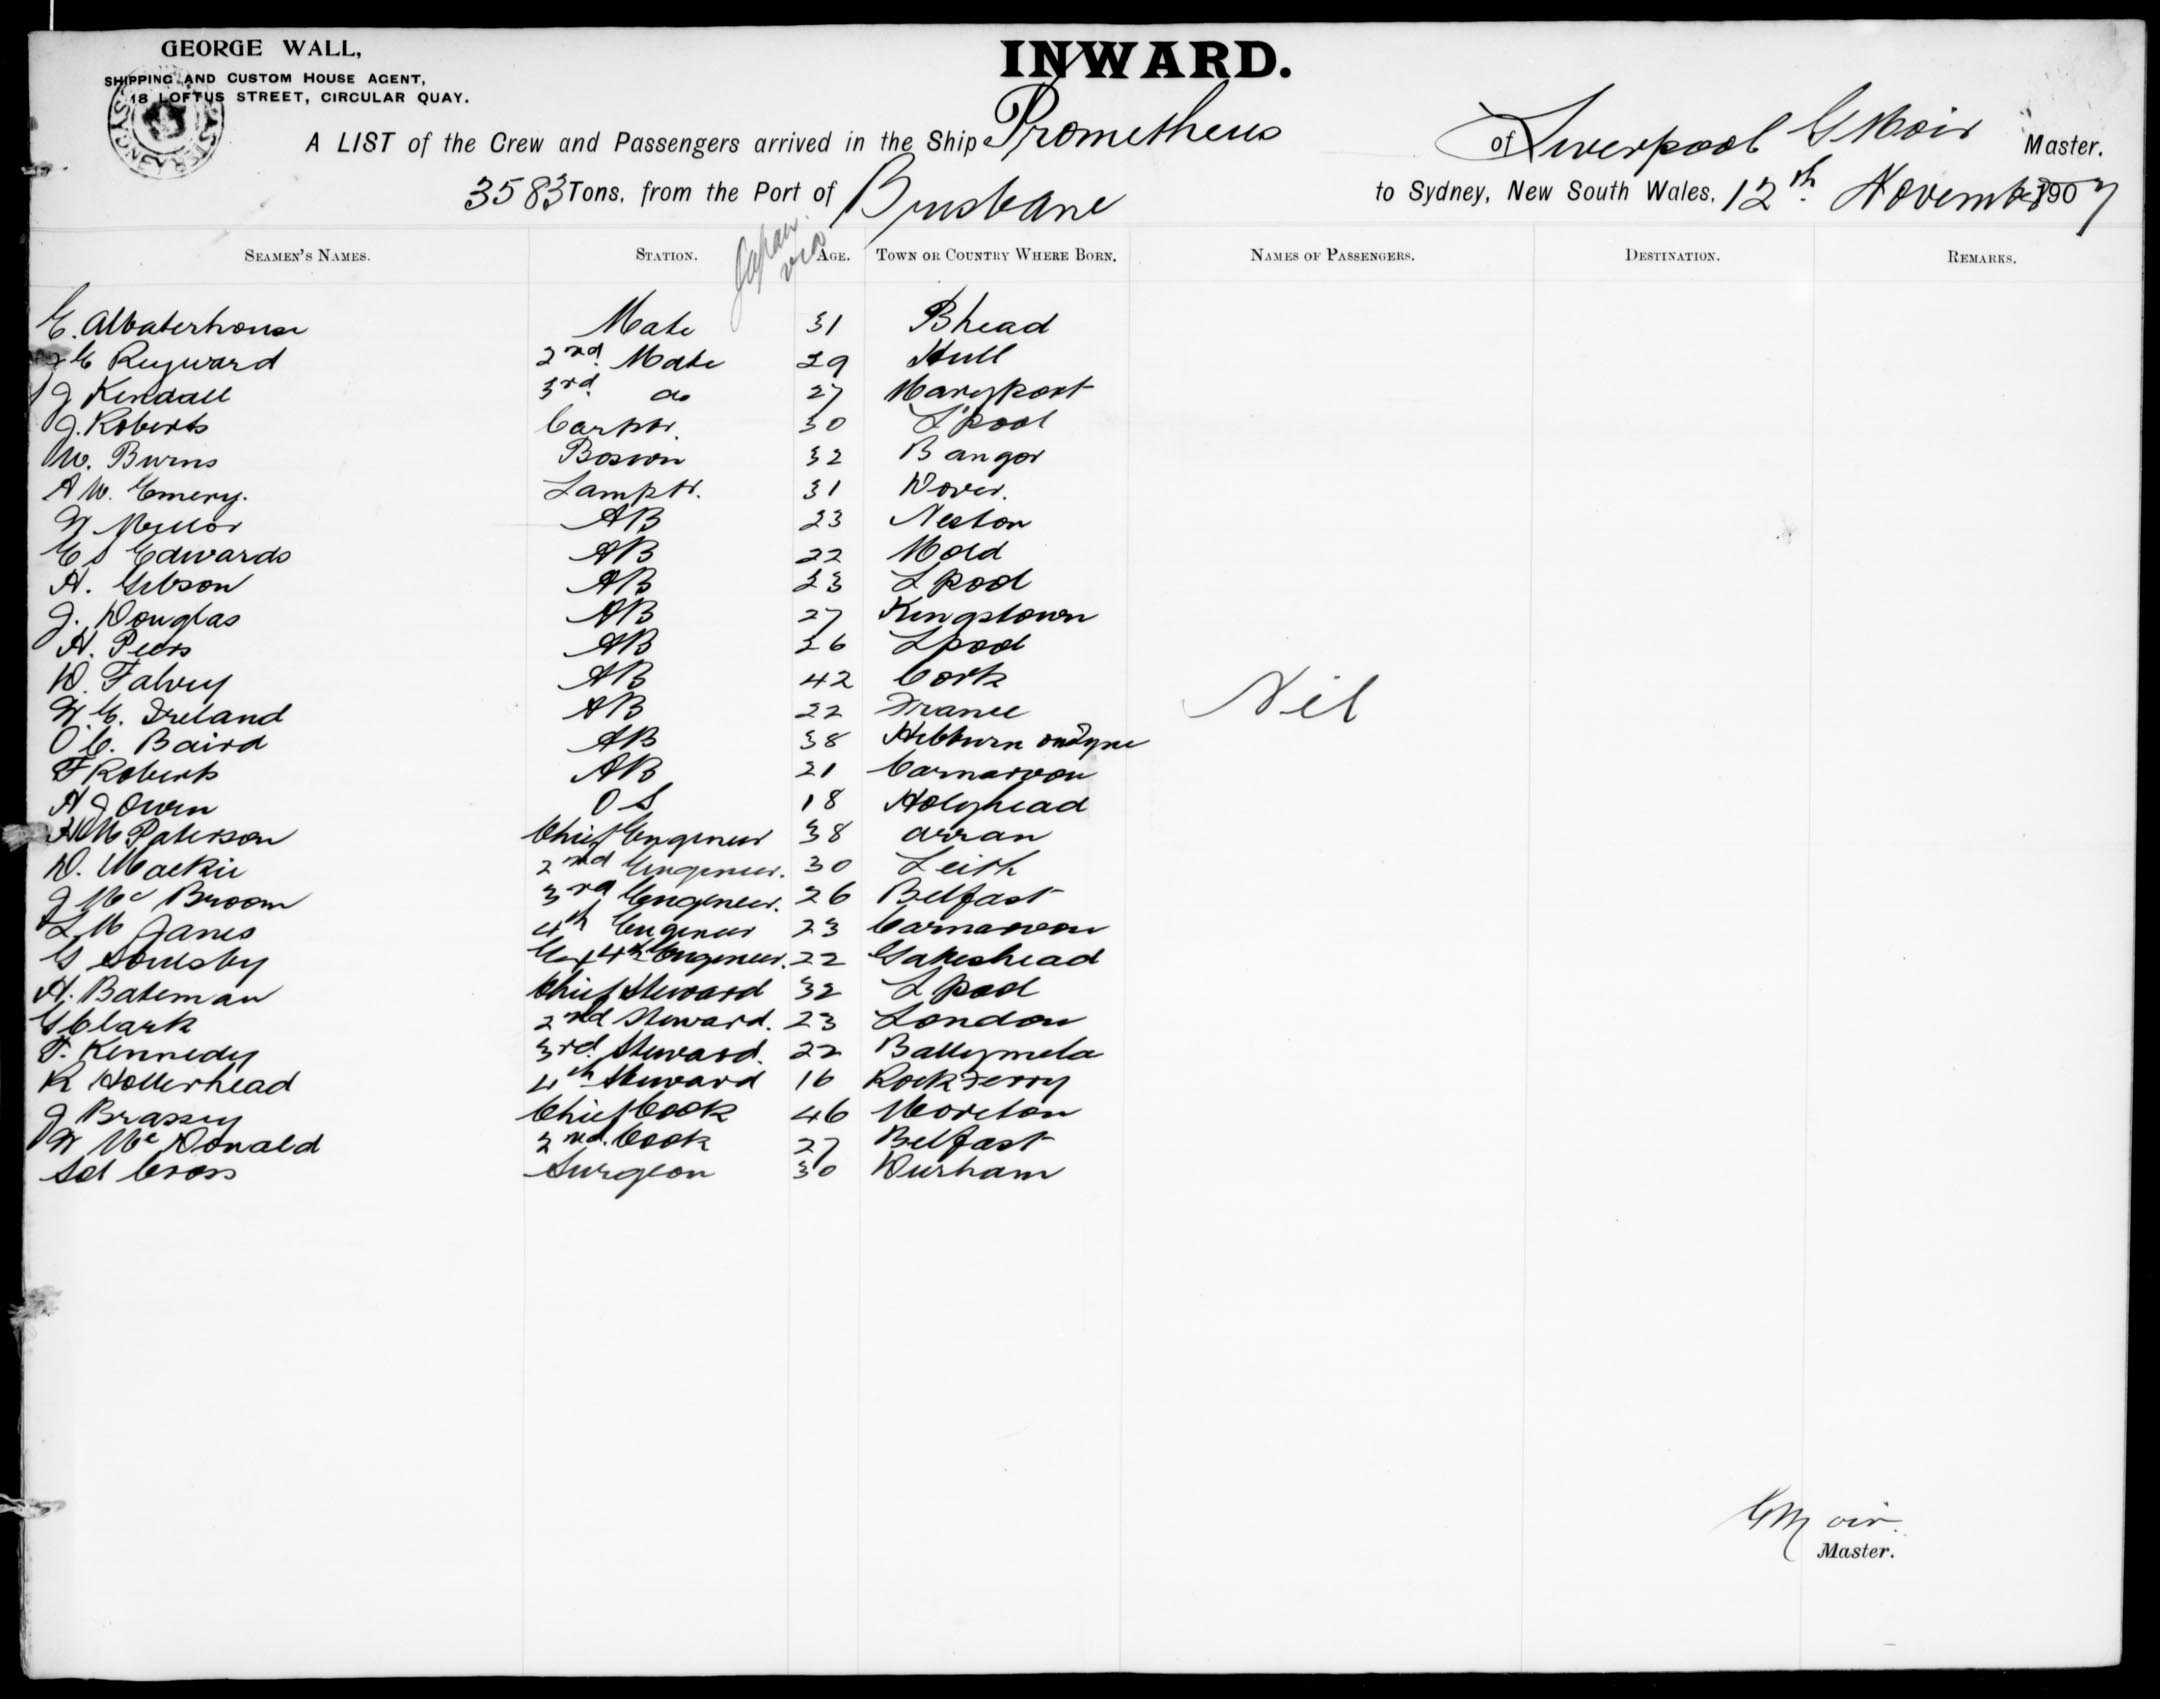 GEORGE WALL,
SHIPPING AND CUSTOM HOUSE AGENT,
18 LOFTUS STREET, CIRCULAR QUAY.
INWARD.
A LIST of the Crew and Passengers arrived in the Ship Prometheus of Liverpool G Moir Master.
3583 Tons, from the Port of Brisbane to Sydney, New South Wales, 12th November 1907
Japan via
SEAMEN'S NAMES. STATION. AGE. TOWN OR COUNTRY WHERE BORN. NAMES OF PASSENGERS. DESTINATION. REMARKS.
E. A Waterhouse Mate 31 Bhead
2nd Mate 29 Hull
J Kendall 3rd do 27 Maryport
J. Roberts Carptr. 30 L'pool
W. Burns Boswn 32 Bangor
A W. Emery. Lamptr. 31 Dover.
W Mellor AB 23 Neston
E S Edwards AB 22 Mold
H. Gibson AB 23 Lpool
J. Douglas AB 27 Kingstown
H. Peers AB 26 Lpool
D. Falvey AB 42 Cork
W. E. Ireland AB 22 France
O. C. Baird AB 38 Hebburn on Tyne
F Roberts AB 21 Carnarvon
H J Owen OS 18 Holyhead
Paterson Chief Engineer 38 Arran
D. Mackie 2nd Engineer. 30 Leith
J Mc Broom 3rd Engineer. 26 Belfast
L M Janes 4th Engineer 23 Carnarvon
G Soulsby Ex 4th Engineer. 22 Gateshead
H. Bateman Chief Steward 32 Lpool
G Clark 2nd Steward. 23 London
T. Kennedy 3rd Steward. 22 Ballymela
R Hollerhead 4th Steward 16 Rock Ferry
J Brassey Chief Cook 46 Moreton
W Mc Donald 2nd. Cook 27 Belfast
Cross Surgeon 30 Durham
Nil
G Moir.
Master.